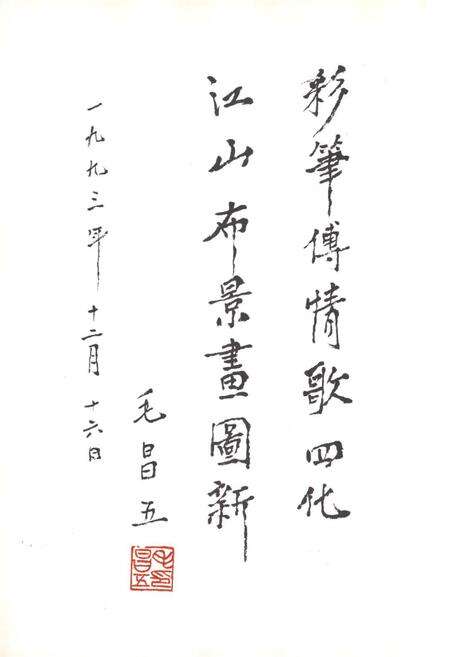 彩筆傳情歌四化
江山布景畫圖新
一九九三年十二月十六日
毛昌五
毛昌五印